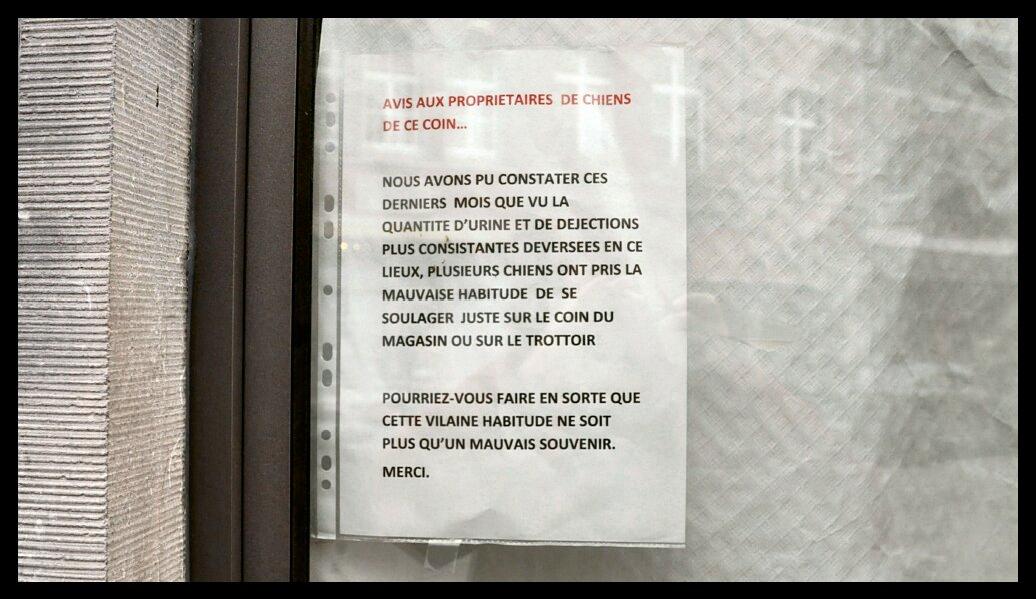 AVIS AUX PROPRIETAIRES DE CHIENS
DE CE COIN...
NOUS AVONS PU CONSTATER CES
DERNIERS MOIS QUE VU LA
QUANTITE D'URINE ET DE DEJECTIONS
PLUS CONSISTANTES DEVERSEES EN CE
LIEUX, PLUSIEURS CHIENS ONT PRIS LA
MAUVAISE HABITUDE DE SE
SOULAGER JUSTE SUR LE COIN DU
MAGASIN OU SUR LE TROTTOIR
POURRIEZ-VOUS FAIRE EN SORTE QUE
CETTE VILAINE HABITUDE NE SOIT
PLUS QU'UN MAUVAIS SOUVENIR.
MERCI.